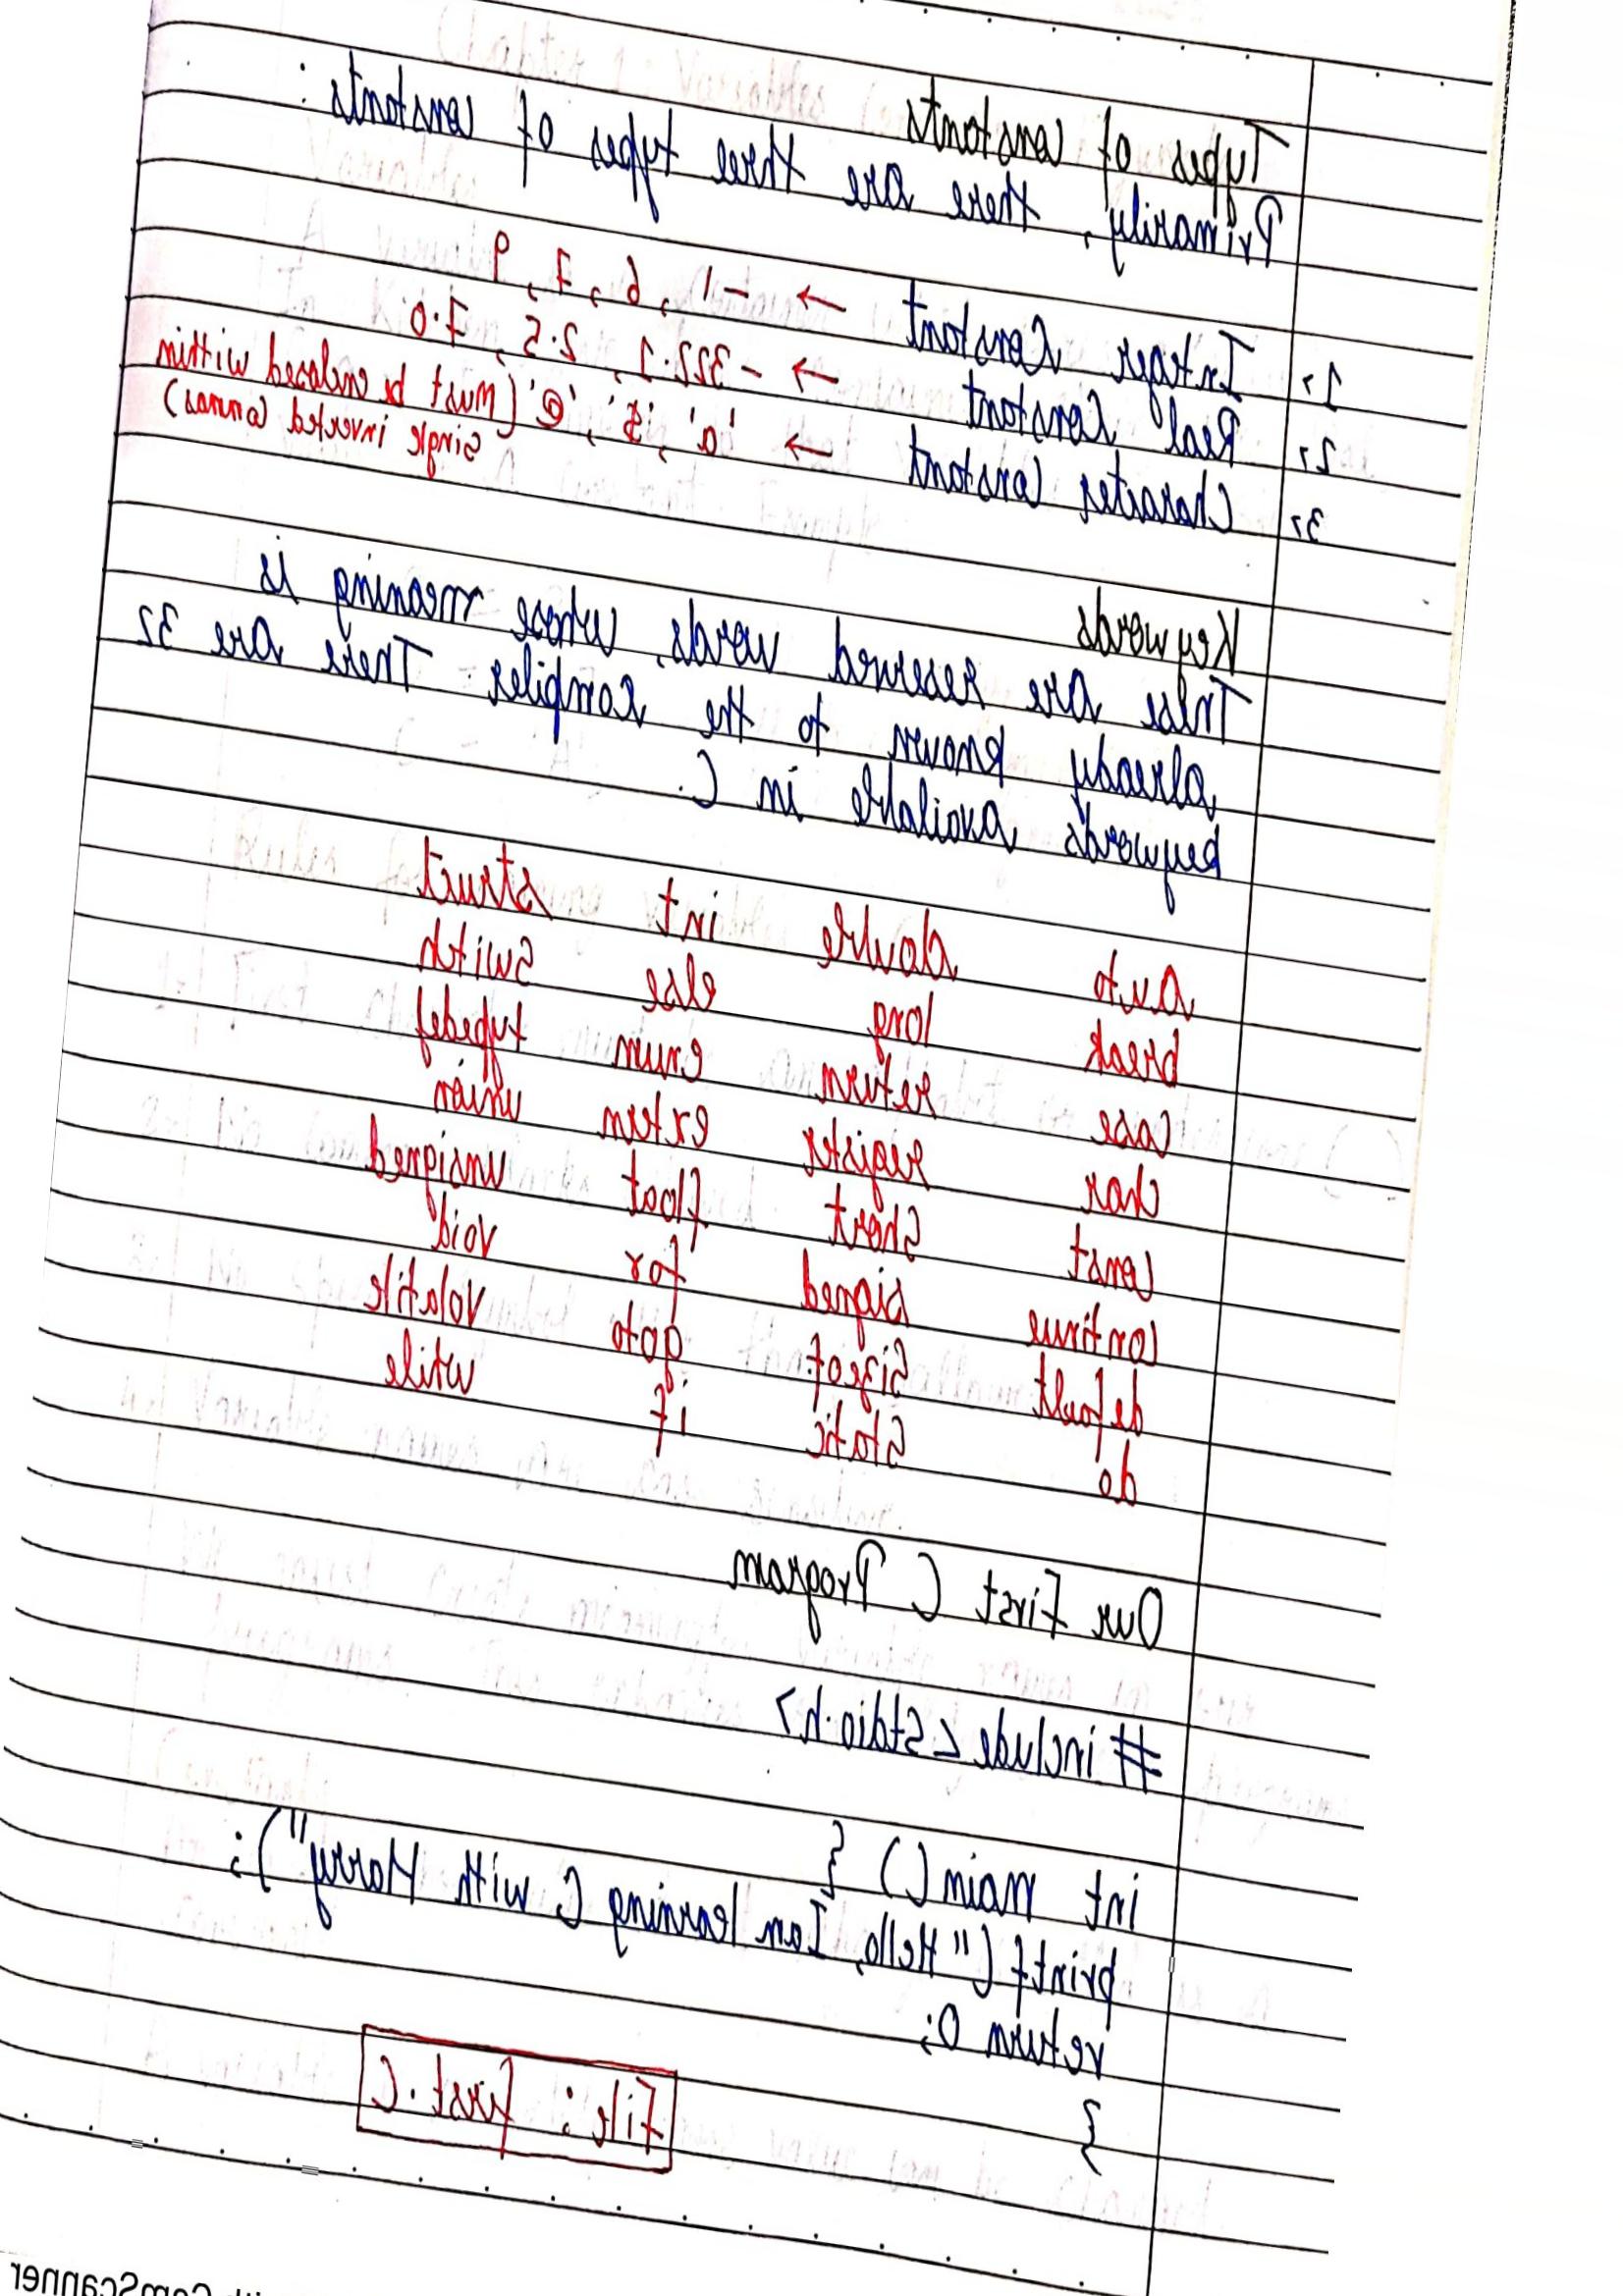 Types of Constants
Primarily, there are three types of constants :
1, Integer Constant → -1, 6, 7, 9
2, Real Constant → -322.1, 2.5, 7.0
3, Character Constant → 'a', '$', '@' (Must be enclosed within
single inverted commas)
Keywords
These are reserved words, whose meaning is
already known to the compiler. There are 32
keywords available in C.
auto double int struct
break long else switch
case return enum typedef
char register extern union
const short float unsigned
continue signed for void
default sizeof goto volatile
do static if while
Our First C Program
#include <stdio.h>
int main() {
printf ("Hello, I am learning C with Harry");
return 0;
}
File : first.c
CamScanner